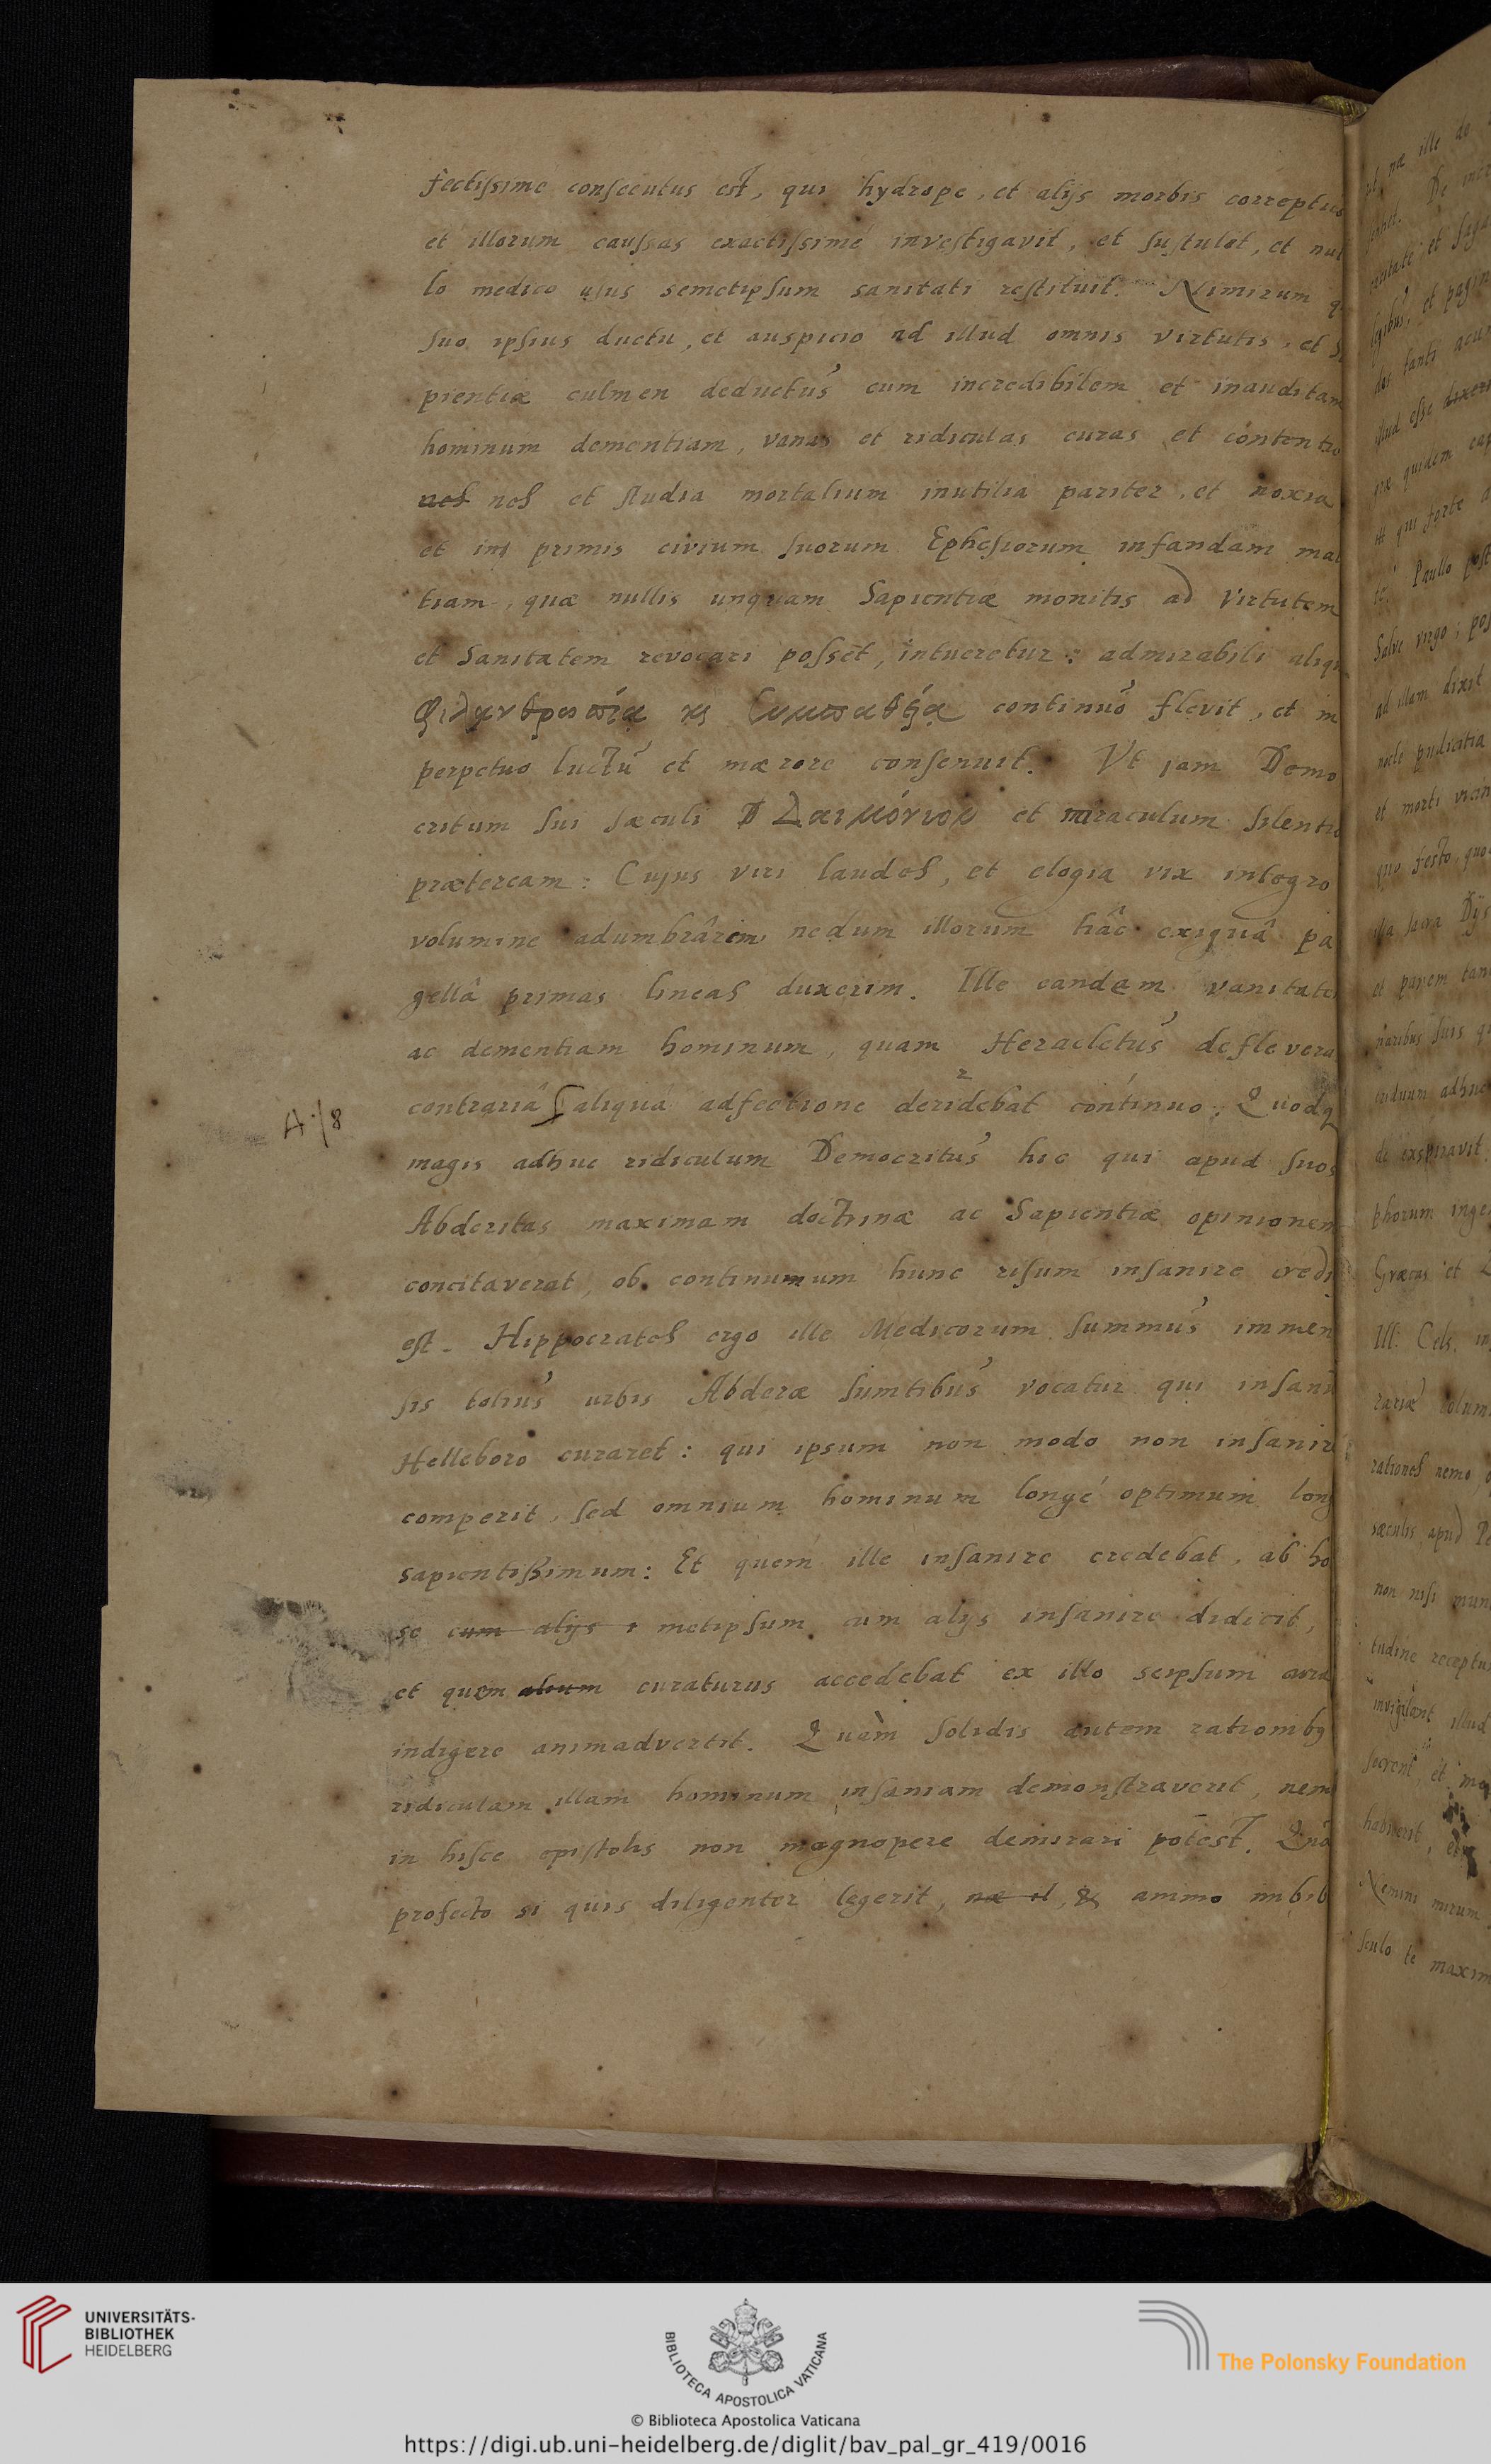 fectissime consecutus est, qui hydrope, et alijs morbis correptus
et illorum caussas exactissimé investigavit, et sustulit, et nul
lo medico usus semetipsum sanitati restituit. Nimirum q
suo ipsius ductu, et auspicio ad illud omnis virtutis, et S
pientiæ culmen deductus cum incredibilem et inauditam
hominum dementiam, vanas et ridiculas curas et contentio
nes nes et studia mortalium inutilia pariter, et noxia
et in primis civium suorum Ephesiorum infandam mal
tiam, quæ nullis unquam Sapientiæ monitis ad virtutem
et Sanitatem revocari posset, intueretur: admirabili aliqu
φιλανθρωπίᾳ ϗ συμπαθείᾳ continuò flevit, et in
perpetuo luctu et mærore consenuit. Vt jam Demo
critum sui sæculi Δαιμόνιον et miraculum silentio
præteream: Cujus viri laudes, et elogia vix integro
volumine adumbrârim nedum illorum hâc exiguâ pa
gellâ primas lineas duxerim. Ille eandem vanitate
ac dementiam hominum, quam Heracletus deflevera
A·/8
contrariâ aliquá adfectione deridebat continuo; Quodq
magis adhuc ridiculum Democritus hic qui apud suos
Abderitas maximam doctrinæ ac Sapientiæ opinionem
concitaverat, ob continuum hunc risum insanire credi
est. Hippocrates ergo ille Medicorum summus immen
sis totius urbis Abderæ sumtibus vocatur qui insani
Helleboro curaret: qui ipsum non modo non insanire
comperit, sed omnium hominum longé optimum long
sapientißimum: Et quem ille insanire credebat, ab ho
se cum alijs metipsum cum alijs insanire didicit,
et quem alium curaturus accedebat ex illo seipsum cura
indigere animadvertit. Quàm solidis autem rationibq
ridiculam illam hominum insaniam demonstraverit, nem
in hisce epistolis non magnopere demirari potest. Quâ
profecto si quis diligenter legerit, & animo imbib
ille de
De
et
et pagin
tanti acu
illud esse
quidem
qui forte
Paullo post
Salve virgo; pos
ad illam dixit
nocte pudicitia
et morti vicin
quo festo, quo
illa sacra Dijs
et panem tan
naribus suis q
adhuc
exspiravit.
phorum inge
Græcas et
Ill. Cels. in
rariæ colum
rationes nemo
sæculis apud
non nisi mun
tudine receptu
invigilant illud
et
habuerit, et
Nemini mirum
sculo te maxim
UNIVERSITÄTS-
BIBLIOTHEK
HEIDELBERG
BIBLIOTECA APOSTOLICA VATICANA
The Polonsky Foundation
© Biblioteca Apostolica Vaticana
https://digi.ub.uni-heidelberg.de/diglit/bav_pal_gr_419/0016